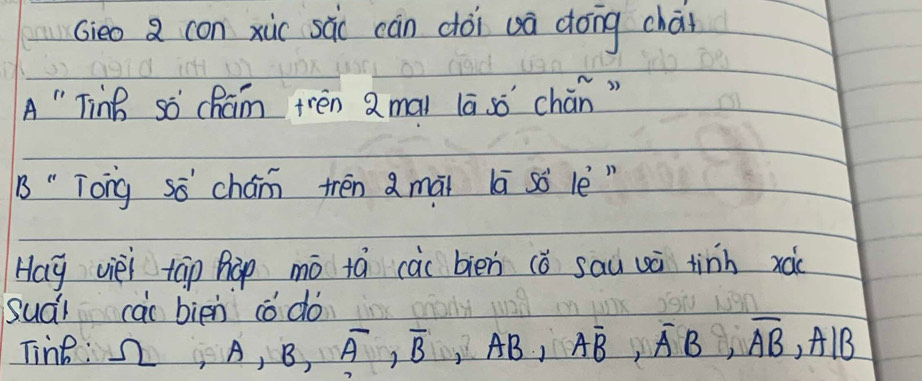 Gieo 2 con xúc sắc cân đối và đồng chất
A " Tính số chấm trên 2 mặt là số chẵn "
B " Tổng số chấm trên 2 mặt là số lẻ "
Hãy viết tập hợp mô tả các biến cố sau và tính xác
suất các biến cố đó
Tính: Ω, A, B, A̅, B̅, AB, AB̅, A̅B, A̅B̅, A|B